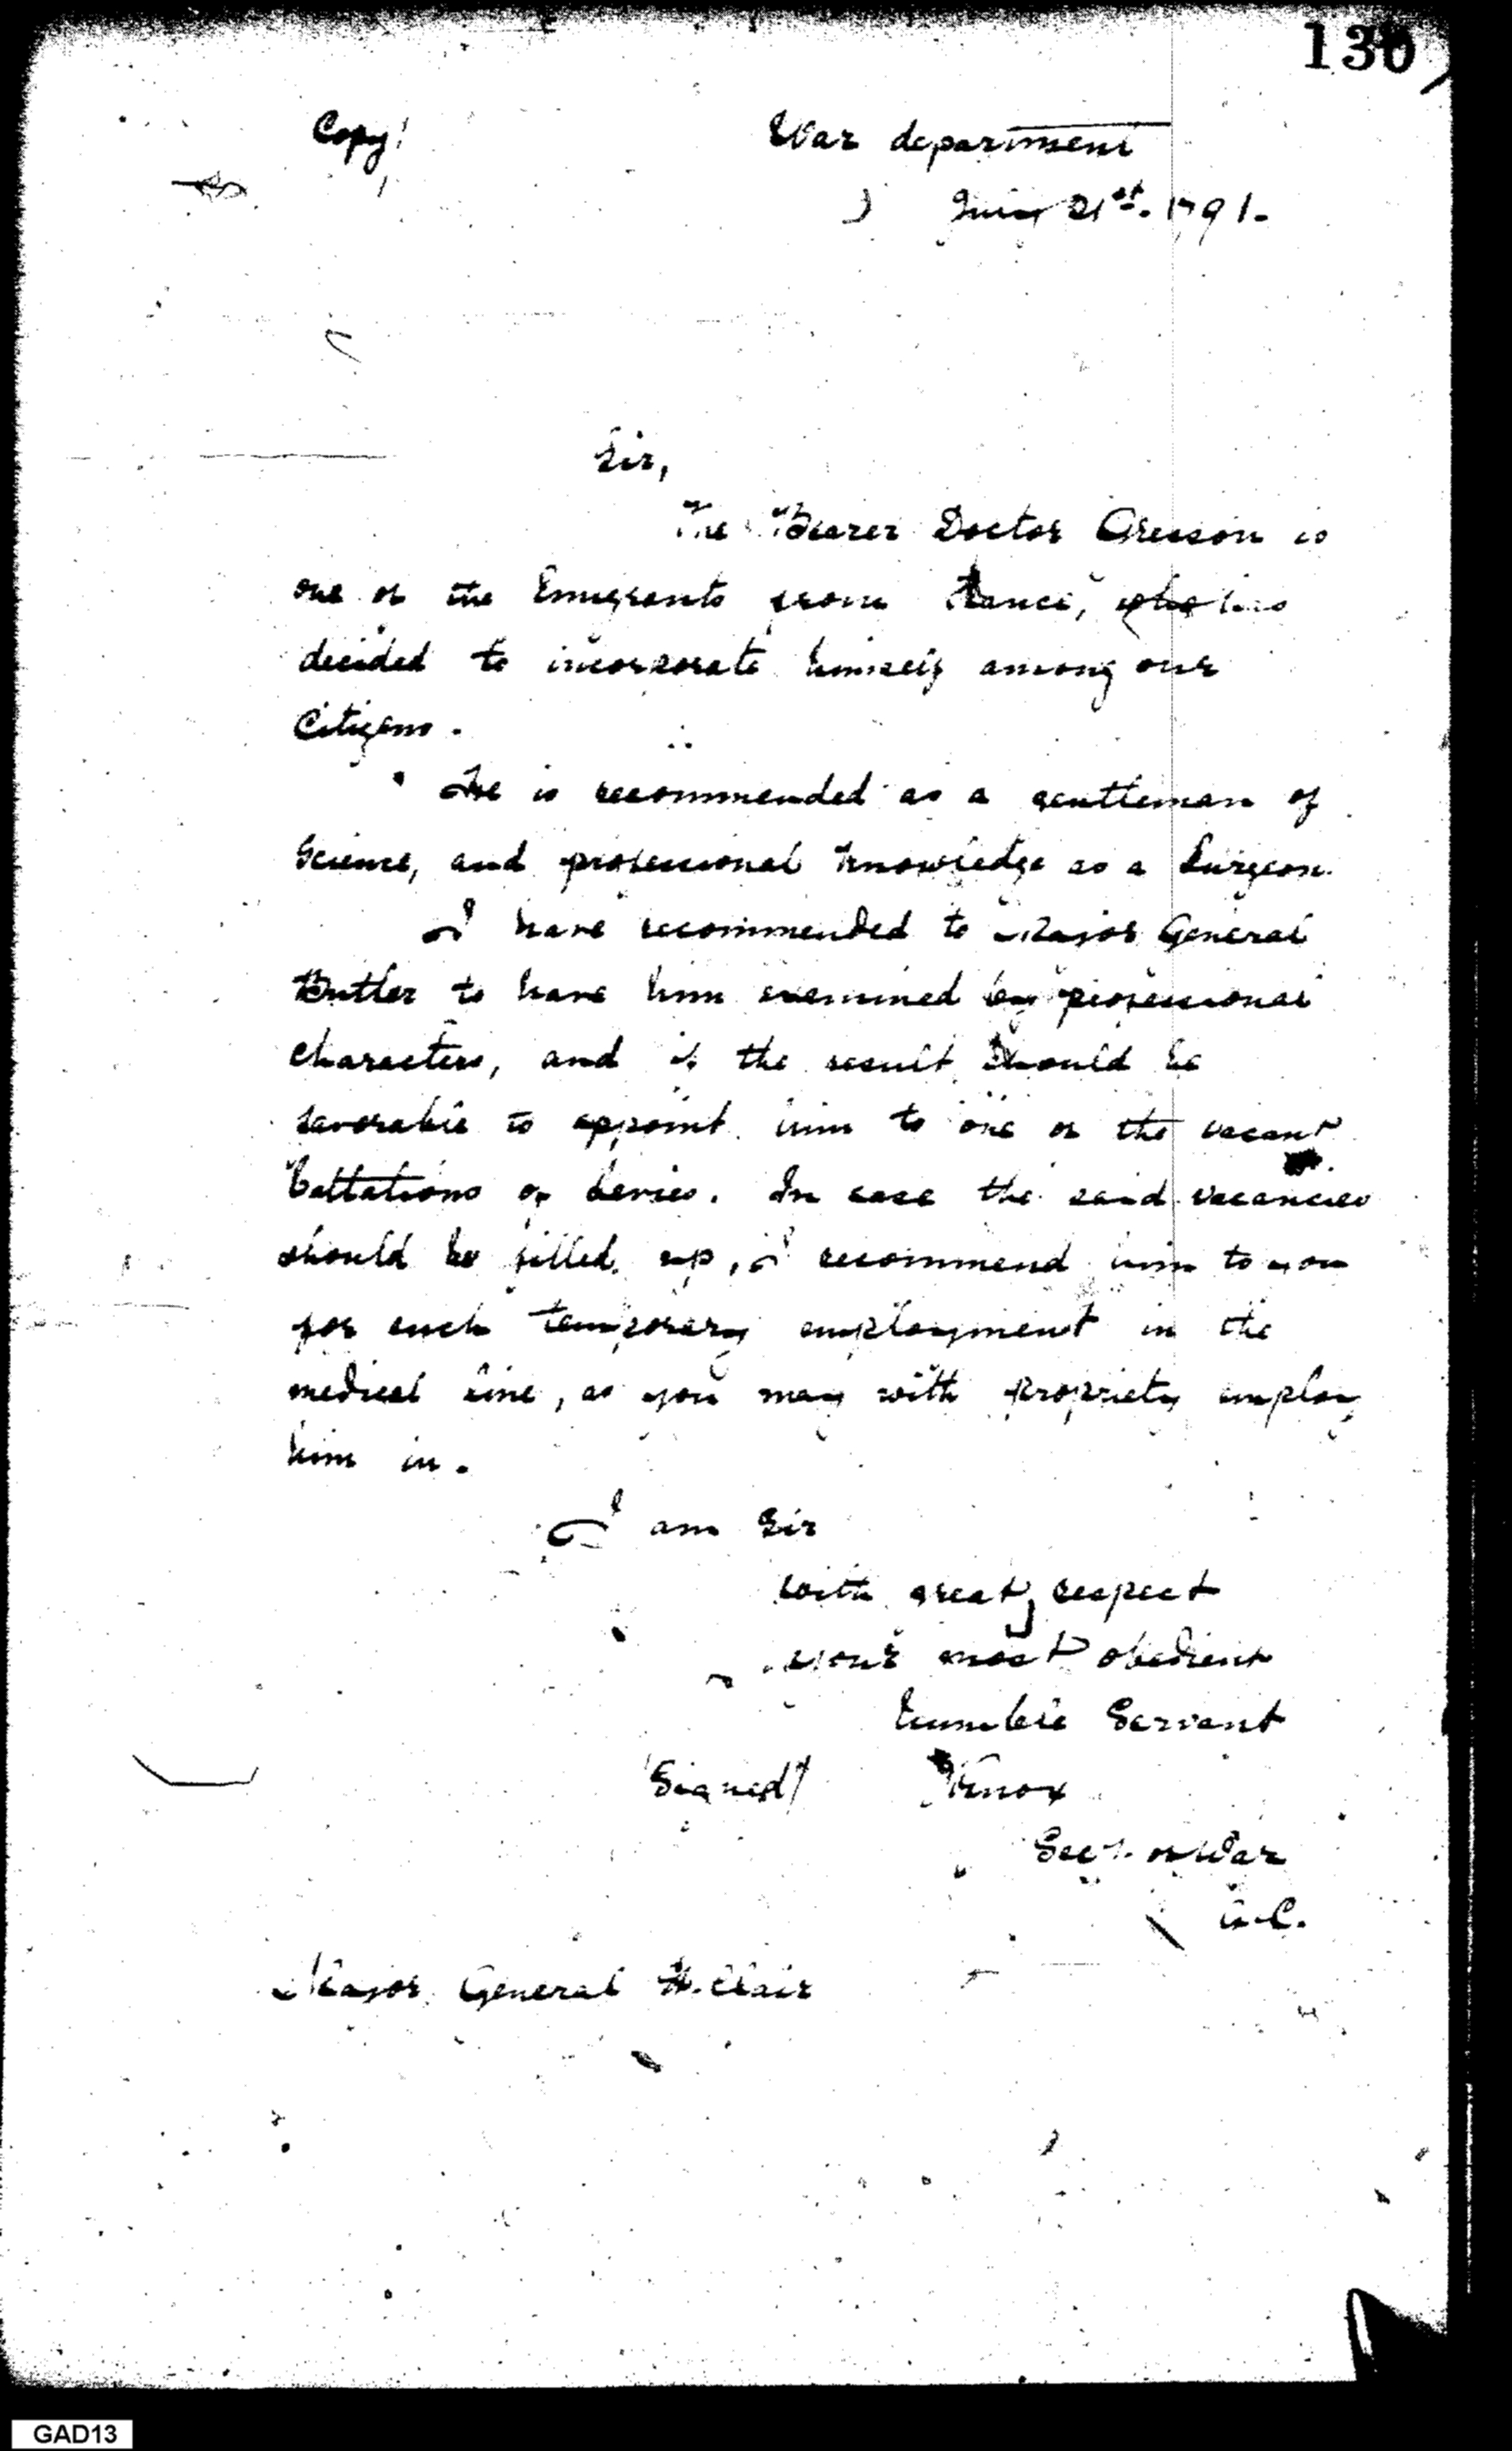 130
Copy!
War department
July 21st. 1791.
Sir,
The Bearer Doctor is
one of the Emigrants from France, who has
decided to incorporate himself among our
Citizens.
He is recommended as a gentleman of
Science, and professional knowledge as a Surgeon.
I have recommended to Major General
Butler to have him examined by professional
characters, and if the result should be
favorable to appoint him to one of the vacant
battalions of Levies. In case the said vacancies
should be filled up, I recommend him to you
for such temporary employment in the
medical line, as you may with propriety employ
him in.
I am Sir
with great respect
your most obedient
humble Servant
Signed/ Knox
Secy. of War
Major General St. Clair
GAD13